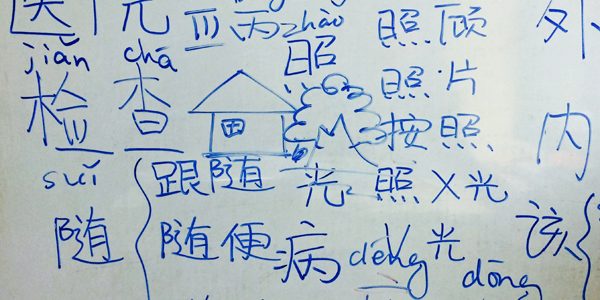 医 院 病 zhào 照顾 外
jiǎn chá 照 照片
检查 按照 内
suí 跟随 光 照X光
随 随便 病 dēng 光 该
dōng